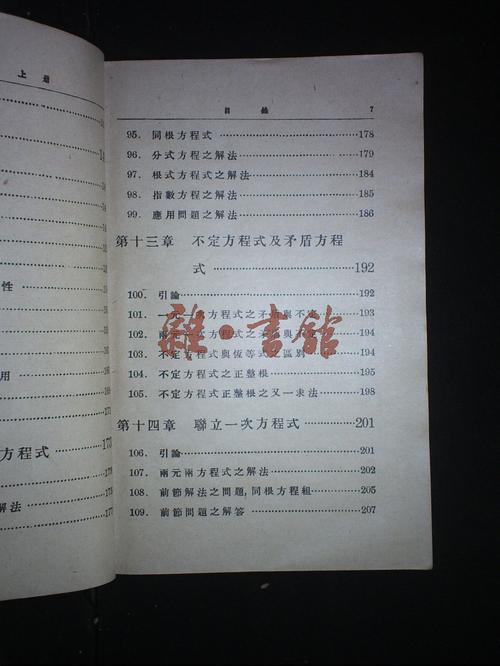 上册
性
用
方程式
解法
目錄 7
95. 同根方程式 178
96. 分式方程之解法 179
97. 根式方程式之解法 184
98. 指數方程之解法 185
99. 應用問題之解法 186
第十三章 不定方程式及矛盾方程
式 192
100. 引論 192
101. 一元一次方程式之矛盾與不定 193
102. 兩元一次方程式之矛盾與不定 194
103. 不定方程式與恆等式之區別 194
104. 不定方程式之正整根 195
105. 不定方程式正整根之又一求法 198
第十四章 聯立一次方程式 201
106. 引論 201
107. 兩元兩方程式之解法 202
108. 前節解法之問題,同根方程組 205
109. 前節問題之解答 207
雜·書館